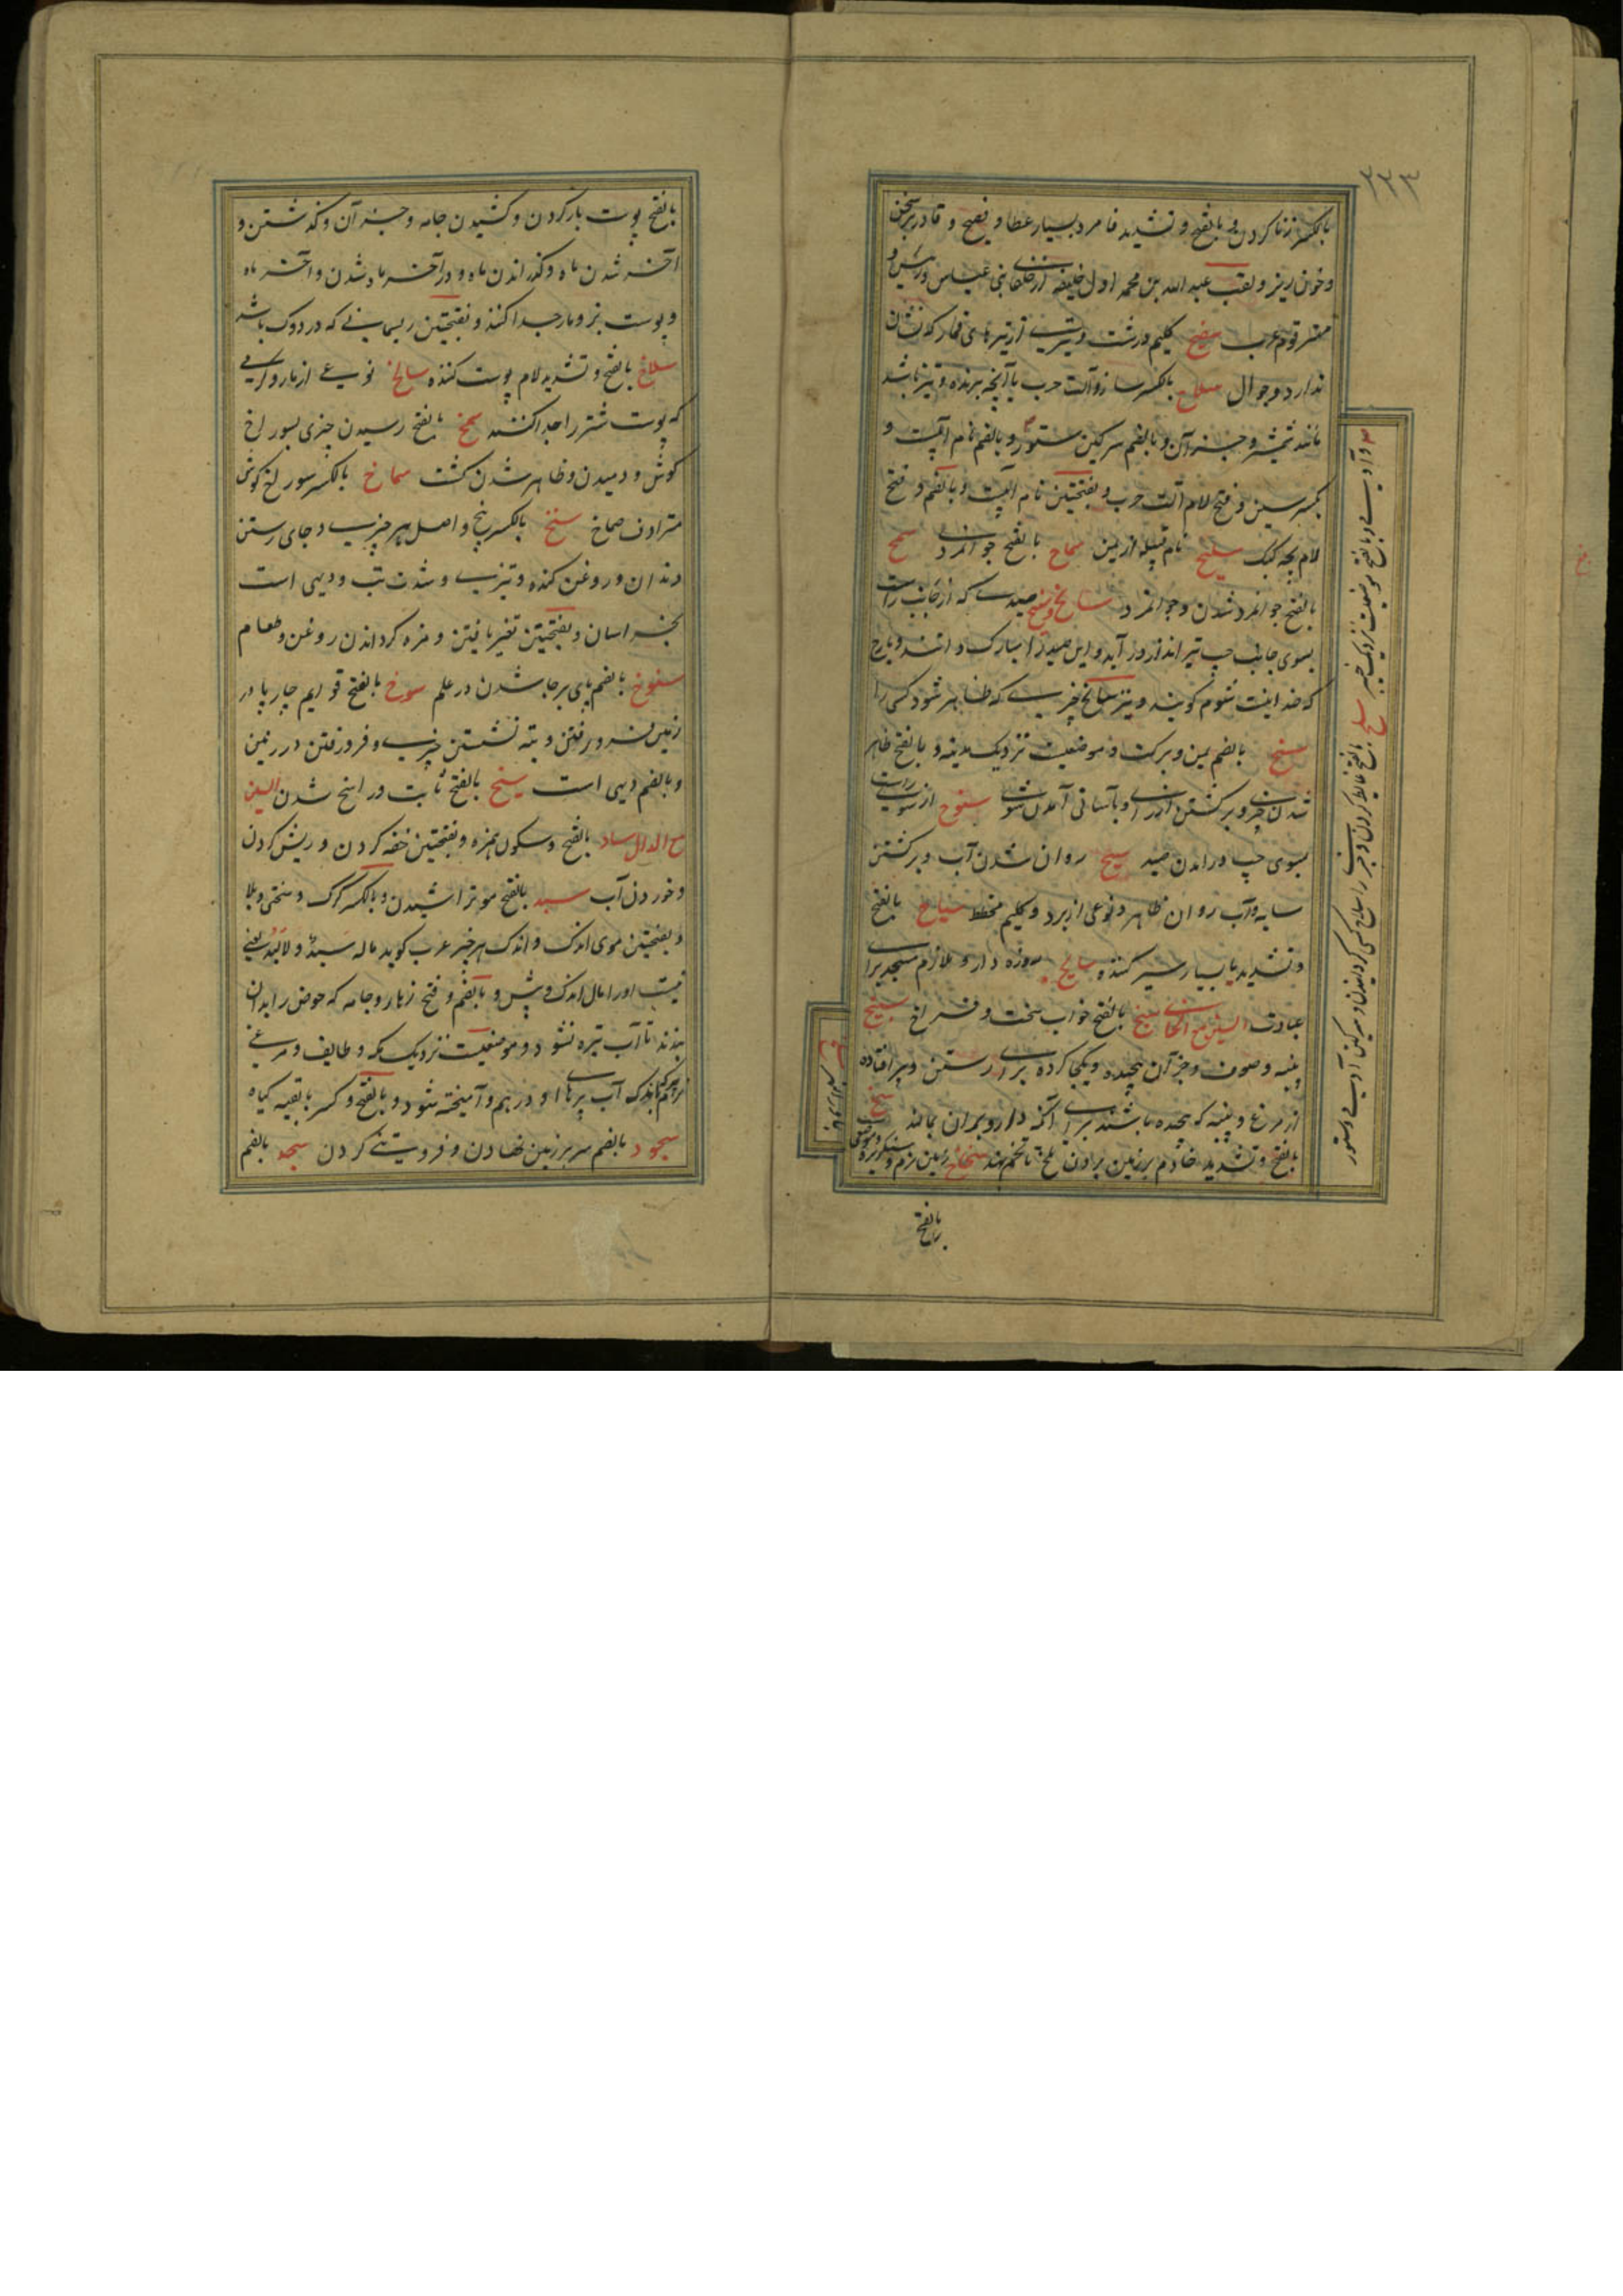 ۳۳۳
بالکسر زنا کردن و بالفتح و تشدید فا مرد بسیار عطا و فصیح و قادر بر سخن
و خون ریز و لقب عبد الله بن محمد اول خلیفه از خلفای بنی عباس و رئیس و
قوم عرب سفیح کلیم درشت و تیریست از تیرهای قمار که نشان
ندارد و جوال سلاح بالکسر ساز و آلت حرب یا آنچه برنده و تیز باشد
مانند شمشیر و جز آن و بالضم سرکین ستور و بالضم نام آبیست و
بکسر سین و فتح لام آلت حرب و بفتحتین نام آبیست و بالضم و فتح
لام بچه کبک سلیح نام قبیله از یمن سماح بالفتح جوانمردی سمح
بالفتح جوانمرد شدن و جوانمرد سانح و سنیح صیدیست که از جانب راست
بسوی جانب چپ تیر انداز در آید و این صید را مبارک دانند و بارح
که ضد اینست شوم کویند و نیز سانح چیزیست که ظاهر شود کسی را
سنح بالضم یمن و برکت و موضعیست نزدیک مدینه و بالفتح ظاهر
شدن چیزی و برکشتن از رای و بآسانی آمدن سنوح از سوی راست
بسوی چپ در آمدن صید سیح روان شدن آب و برکشتن
سایه و آب روان ظاهر و نوعی از برد و کلیم مخطط سیاح بالفتح
و تشدید یا بسیار سیر کننده سایح روزه دار و ملازم مسجد برای
عبادت السین مع الخای سبخ بالفتح خواب سخت و فراغ سبیخ
پنبه و صوف و جز آن پیچیده و یکجا کرده برای رستن و پر افتاده
از مرغ و پنبه که پیچیده باشند برای آنکه دارو بران بمالند
بالفتح و تشدید خا دم بر زمین بردن ملخ تا تخم نهد سخاخ زمین نرم و نیکو
بالفتح
سلح بالفتح
بالفتح پوست باز کردن و کشیدن جامه و جز آن و کذشتن و
آخر شدن ماه و کذراندن ماه و در آخر ماه شدن و آخر ماه
و پوست بز و مار جدا کنند و بفتحتین ریسمانی که در دوک باشد
سلاخ بالفتح و تشدید لام پوست کننده سالخ نوعی از مار و کری
که پوست شتر را جدا کند سمخ بالفتح رسیدن چیزی بسوراخ
کوش و دمیدن و ظاهر شدن کشت سماخ بالکسر سوراخ کوش
مترادف صماخ سنخ بالکسر بیخ و اصل هر چیزیست و جای رستن
دندان و روغن کنده و تیزی و شدت تب و دیهی است
بخراسان و بفتحتین تغیر یافتن و مزه کرداندن روغن و طعام
سنوخ بالضم پای برجا شدن در علم سوخ بالفتح قوایم چارپا در
زمین فرو رفتن و بته نشستن چیزی و فرو رفتن در زمین
و بالضم دیهی است سیخ بالفتح ثابت و راسخ شدن السین
مع الدال ساد بالفتح و سکون همزه و بفتحتین خفه کردن و ریش کردن
و خوردن آب سبد بالفتح مو تراشیدن و بالکسر کرک و سختی و بلا
و بفتحتین موی اندک و اندک هر چیز عرب کوید ماله سبد و لا لبد یعنی
نیست او را مال اندک و بیش و بالضم و فتح زهار و جامه که حوض را بدان
بندند تا آب تیره نشود و موضعیست نزدیک مکه و طایف و مرغی
که باندک آب پرهای او در هم و آمیخته شود و بالفتح و کسر با بقیه کیاه
سجود بالضم سر بر زمین نهادن و فروتنی کردن سجد بالضم